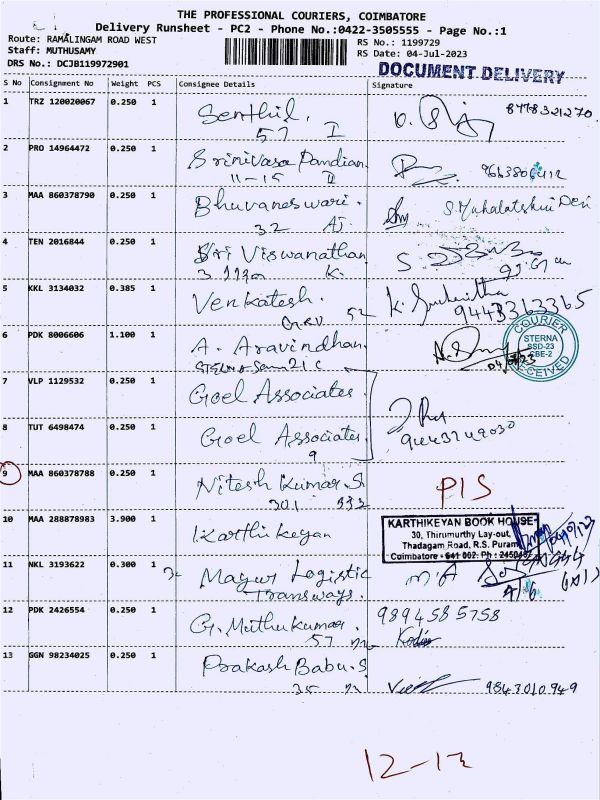 THE PROFESSIONAL COURIERS, COIMBATORE
Delivery Runsheet - PC2 - Phone No.:0422-3505555 - Page No.:1
Route: RAMALINGAM ROAD WEST
RS No.: 1199729
Staff: MUTHUSAMY
RS Date: 04-Jul-2023
DRS No.: DCJB119972901
DOCUMENT DELIVERY
S No Consignment No Weight PCS Consignee Details Signature
1 TRZ 120020067 0.250 1 Senthil. 8778321270
57 I
2 PRO 14964472 0.250 1 Srinivasa Pandian.
11-15 II
3 MAA 860378790 0.250 1 Bhuvaneswari.
32
4 TEN 2016844 0.250 1 Sri Viswanathan
5 KKL 3134032 0.385 1 Venkatesh.
52
6 PDK 8006606 1.100 1 A. Aravindhan.
COURIER
STERNA
SSD-23
CBE-2
RECEIVED
7 VLP 1129532 0.250 1 Goel Associates
8 TUT 6498474 0.250 1 Goel Associates
9
9 MAA 860378788 0.250 1 Nitesh Kumar. S
301 332
10 MAA 288878983 3.900 1 Karthikeyan
KARTHIKEYAN BOOK HOUSE
30, Thirumurthy Lay-out,
Thadagam Road, R.S. Puram
Coimbatore - 641 002. Ph :
11 NKL 3193622 0.300 1 Mayur Logistic
Transways.
12 PDK 2426554 0.250 1 G. Muthukumar. 9894585758
57
13 GGN 98234025 0.250 1 Prakash Babu. S
35 9843010949